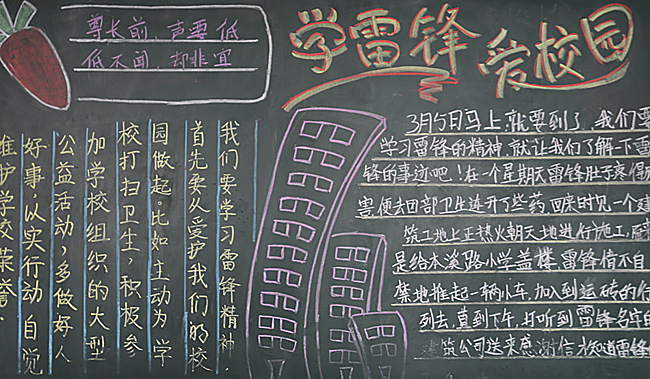 尊长前，声要低
低不闻，却非宜
学雷锋 爱校园
我们要学习雷锋精神，
首先要从爱护我们的校
园做起，比如主动为学
校打扫卫生，积极参
加学校组织的大型
公益活动，多做好人
好事，以实行动自觉
维护学校荣誉.
3月5日马上就要到了，我们要
学习雷锋的精神，就让我们了解一下雷
锋的事迹吧！在一个星期天雷锋肚子疼得
害便去团部卫生连开了些药回来时见一个建
筑工地上正热火朝天地进行施工，
是给本溪路小学盖楼，雷锋情不自
禁地推起一辆小车，加入到运砖的行
列去，直到下午，打听到雷锋名字的
建筑公司送来感谢信才知道雷锋